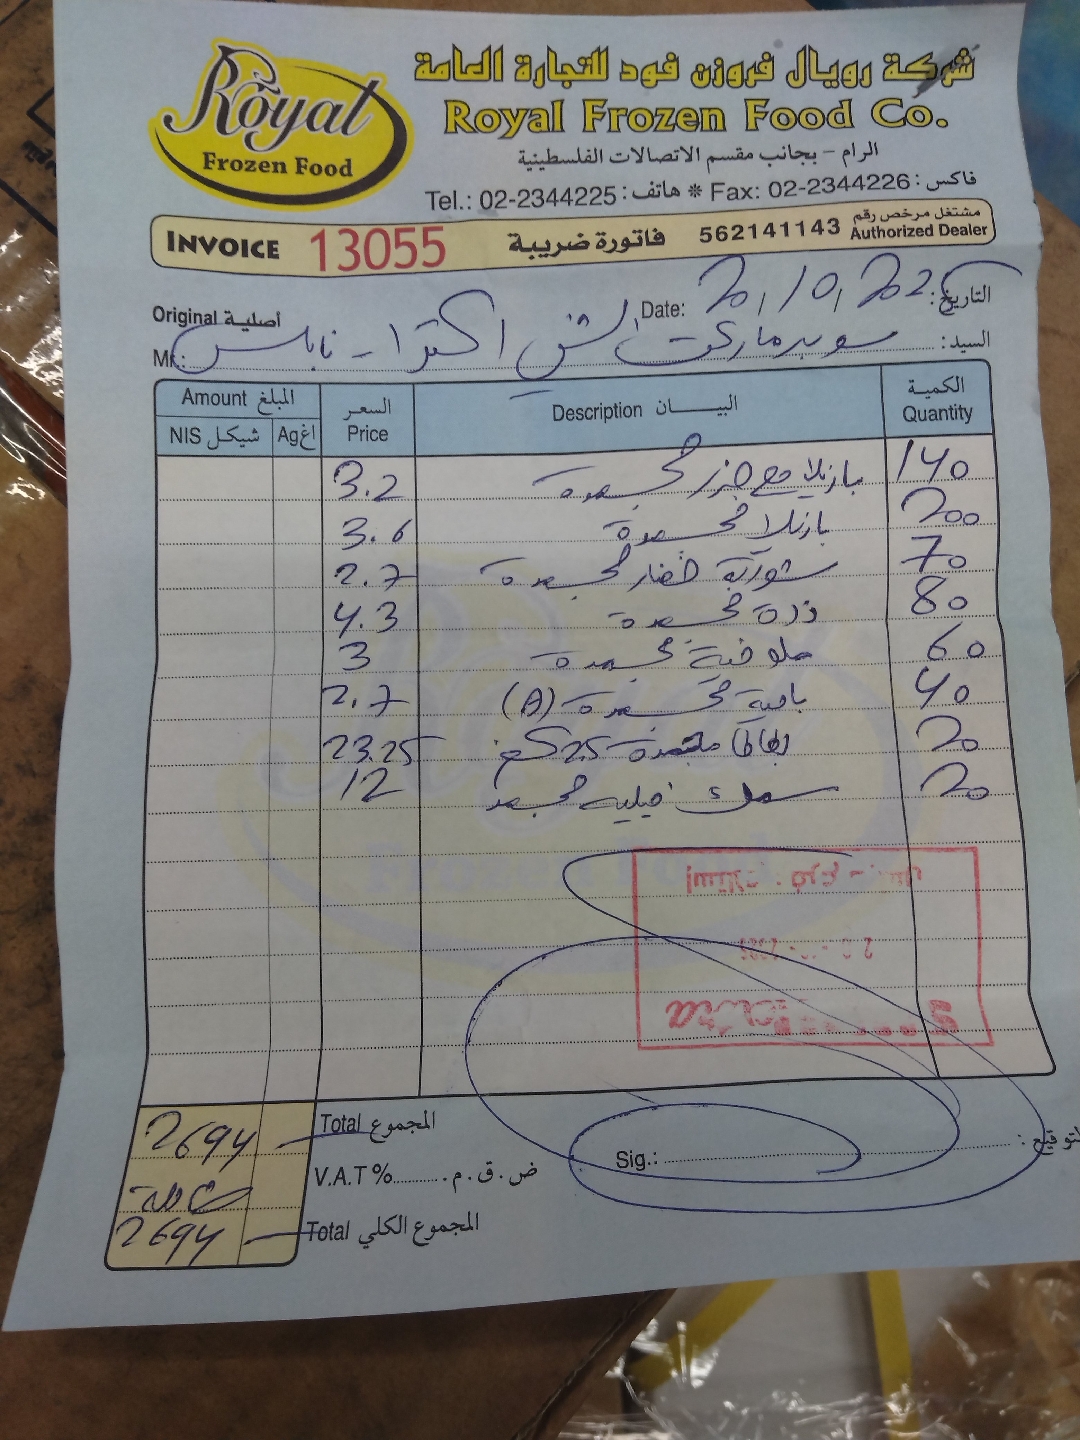 Royal
Frozen Food
شركة رويال فروزن فود للتجارة العامة
Royal Frozen Food Co.
الرام - بجانب مقسم الاتصالات الفلسطينية
Tel.: 02-2344225 هاتف: * Fax: 02-2344226 فاكس:
INVOICE 13055 فاتورة ضريبة 562141143 مشتغل مرخص رقم Authorized Dealer
Original أصلية Date: 20/10/202 التاريخ:
Mr.: سوبرماركت اكسترا - نابلس السيد:
Amount المبلغ السعر Price Description البيــــان الكمية Quantity
NIS شيكل Ag اغ
3.2 بازيلا مع جزر مجمدة 140
3.6 بازيلا مجمدة 200
2.7 شوربة خضار مجمدة 70
4.3 ذرة مجمدة 80
3 ملوخية مجمدة 60
2.7 بامية مجمدة (A) 40
23.25 بطاطا مجمدة 2.5 كغ 20
12 سمك فيليه مجمد 20
2694 Total المجموع
V.A.T % ض.ق.م. Sig.: التوقيع:
2694 Total المجموع الكلي